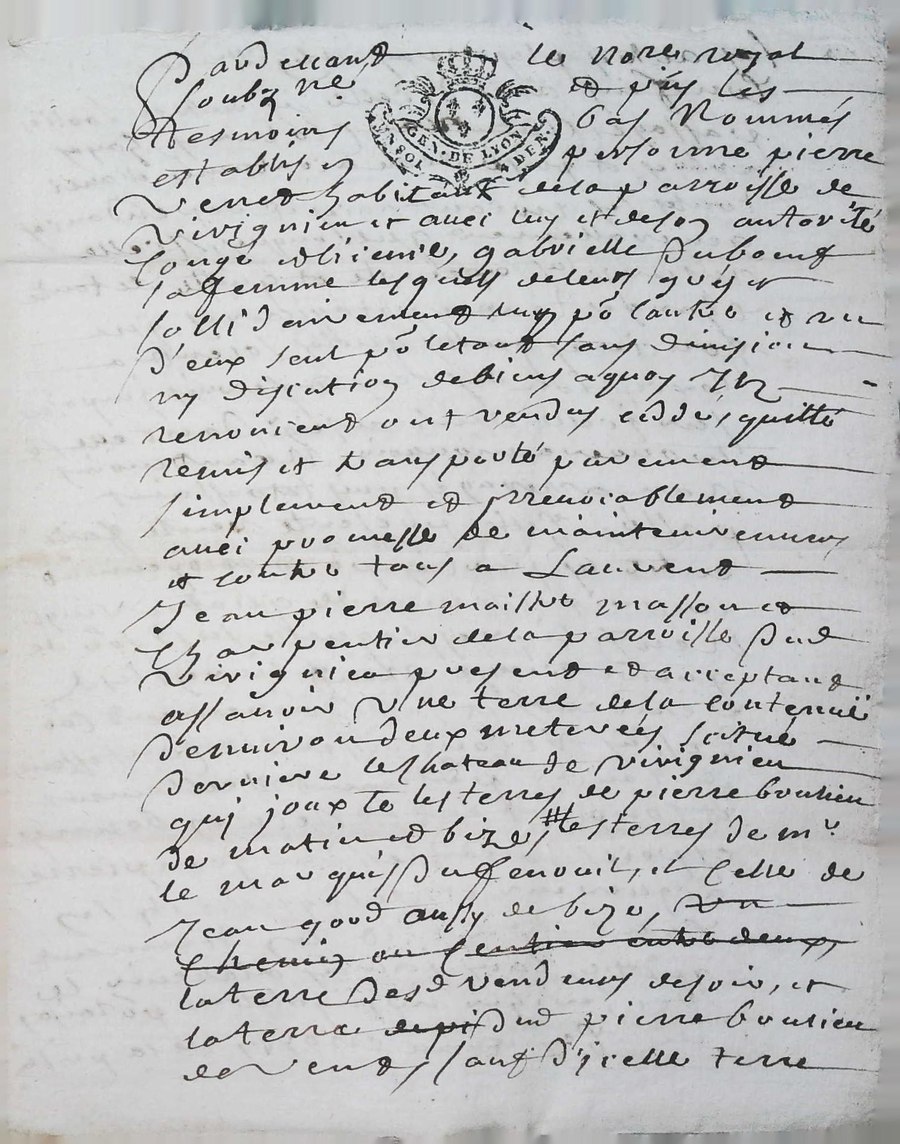 Pardevant le no.re royal
soub.né et pñs les
tesmoins bas nommés
establis en personne pierre
Verret habitant de la parroisse de
Vivignieu et avec luy et de son autorité
congé et licence, gabrielle Duboeuf
sa femme lesquels de leurs gré et
sollidairement l'un põ l'autre et un
d'eux seul põ le tout sans division
ny discution de biens a quoy ilz
renoncent ont vendus ceddé, quitté
remis et transporté purement
simplement et irrevocablement
avec promesse de maintenir envers
et contre tous a Laurent
Jean pierre maillet masson et
Charpentier de la parroisse dud
Vivignieu present et acceptant
assavoir Une terre de la contenue
d'environ deux meterées scitue
derniere le Chateau de Vivignieu
qui jouxte les terres de pierre boulieu
de matin et bize, les terres de mr
le marquis du fenouil, et celle de
Jean goud aussy de bize, un
Chemin ou sentier entre deux,
la terre desd vendeurs de soir, et
la terre de pi dud pierre boulieu
de vent, sauf d'icelle terre
GEN. DE LYON
DEN.